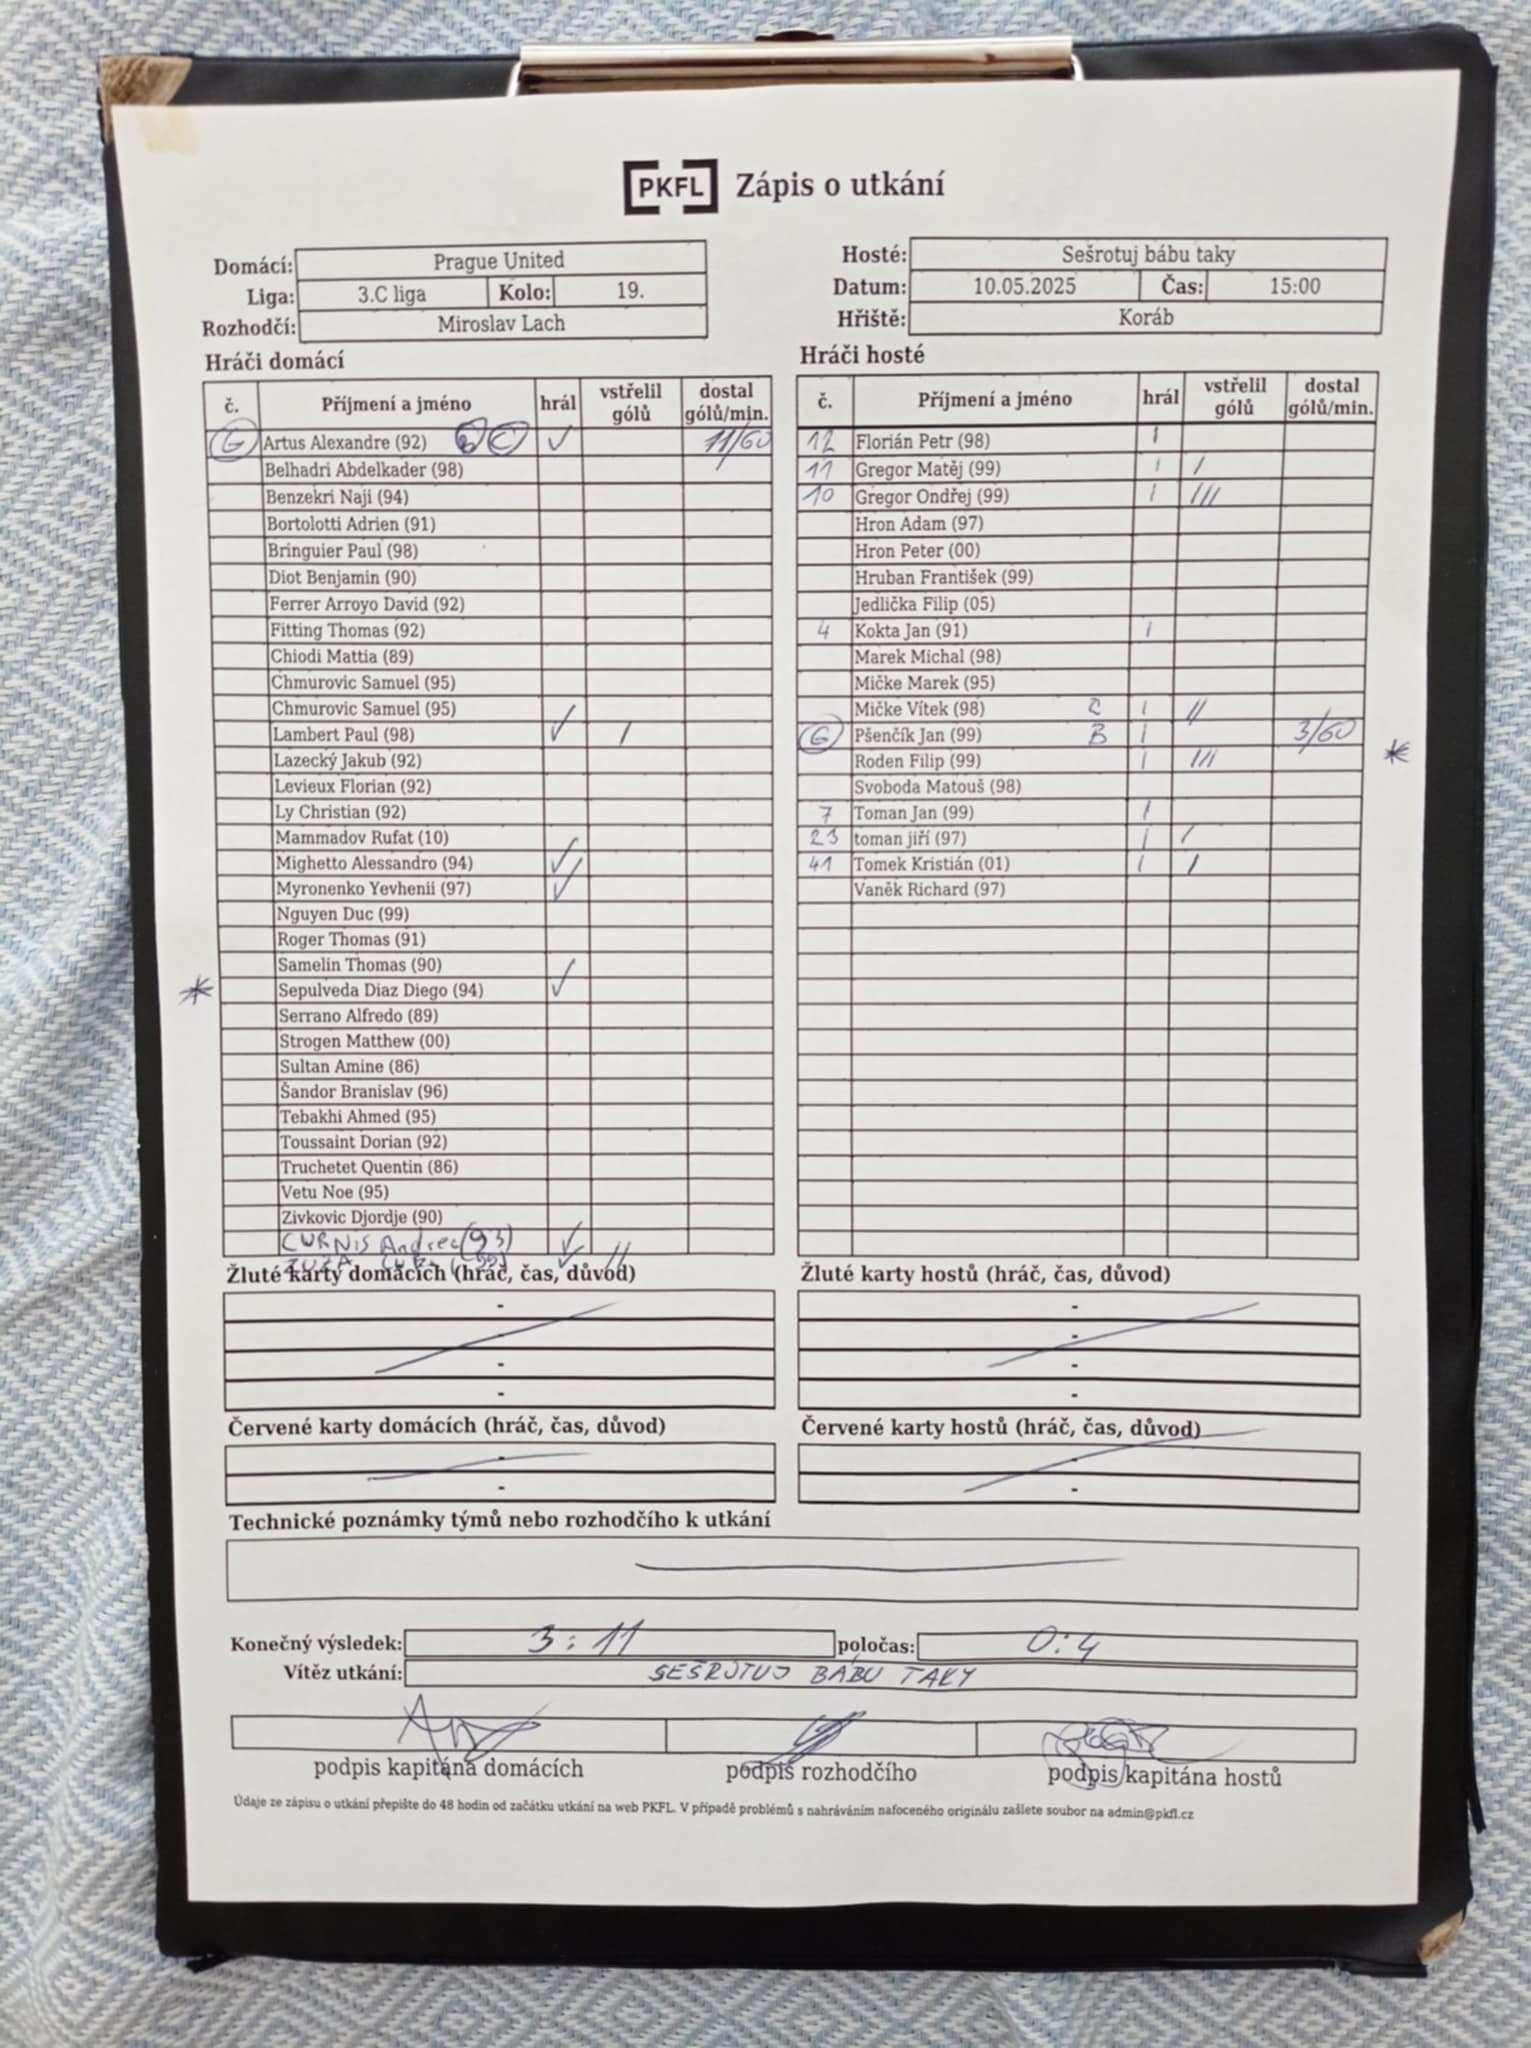 PKFL Zápis o utkání
Domácí: Prague United
Liga: 3.C liga Kolo: 19.
Rozhodčí: Miroslav Lach
Hosté: Sešrotuj bábu taky
Datum: 10.05.2025 Čas: 15:00
Hřiště: Koráb
Hráči domácí
č. Příjmení a jméno hrál vstřelil gólů dostal gólů/min.
G Artus Alexandre (92) B C ✓ 11/60
Belhadri Abdelkader (98)
Benzekri Naji (94)
Bortolotti Adrien (91)
Bringuier Paul (98)
Diot Benjamin (90)
Ferrer Arroyo David (92)
Fitting Thomas (92)
Chiodi Mattia (89)
Chmurovic Samuel (95)
Chmurovic Samuel (95)
Lambert Paul (98) ✓ /
Lazecký Jakub (92)
Levieux Florian (92)
Ly Christian (92)
Mammadov Rufat (10)
Mighetto Alessandro (94) ✓
Myronenko Yevhenii (97) ✓
Nguyen Duc (99)
Roger Thomas (91)
Samelin Thomas (90)
* Sepulveda Diaz Diego (94) ✓
Serrano Alfredo (89)
Strogen Matthew (00)
Sultan Amine (86)
Šandor Branislav (96)
Tebakhi Ahmed (95)
Toussaint Dorian (92)
Truchetet Quentin (86)
Vetu Noe (95)
Zivkovic Djordje (90)
CURNIS Andrea (93) ✓
✓ //
Hráči hosté
č. Příjmení a jméno hrál vstřelil gólů dostal gólů/min.
12 Florián Petr (98) |
11 Gregor Matěj (99) | /
10 Gregor Ondřej (99) | ///
Hron Adam (97)
Hron Peter (00)
Hruban František (99)
Jedlička Filip (05)
4 Kokta Jan (91) |
Marek Michal (98)
Mičke Marek (95)
Mičke Vítek (98) | //
G Pšenčík Jan (99) B | 3/60
Roden Filip (99) | /// *
Svoboda Matouš (98)
7 Toman Jan (99) |
23 toman jiří (97) | /
41 Tomek Kristián (01) | /
Vaněk Richard (97)
Žluté karty domácích (hráč, čas, důvod)
-
-
-
-
Žluté karty hostů (hráč, čas, důvod)
-
-
-
-
Červené karty domácích (hráč, čas, důvod)
-
-
Červené karty hostů (hráč, čas, důvod)
-
-
Technické poznámky týmů nebo rozhodčího k utkání
Konečný výsledek: 3:11 poločas: 0:4
Vítěz utkání: SEŠROTUJ BÁBU TAKY
podpis kapitána domácích podpis rozhodčího podpis kapitána hostů
Údaje ze zápisu o utkání přepište do 48 hodin od začátku utkání na web PKFL. V případě problémů s nahráváním nafoceného originálu zašlete soubor na admin@pkfl.cz